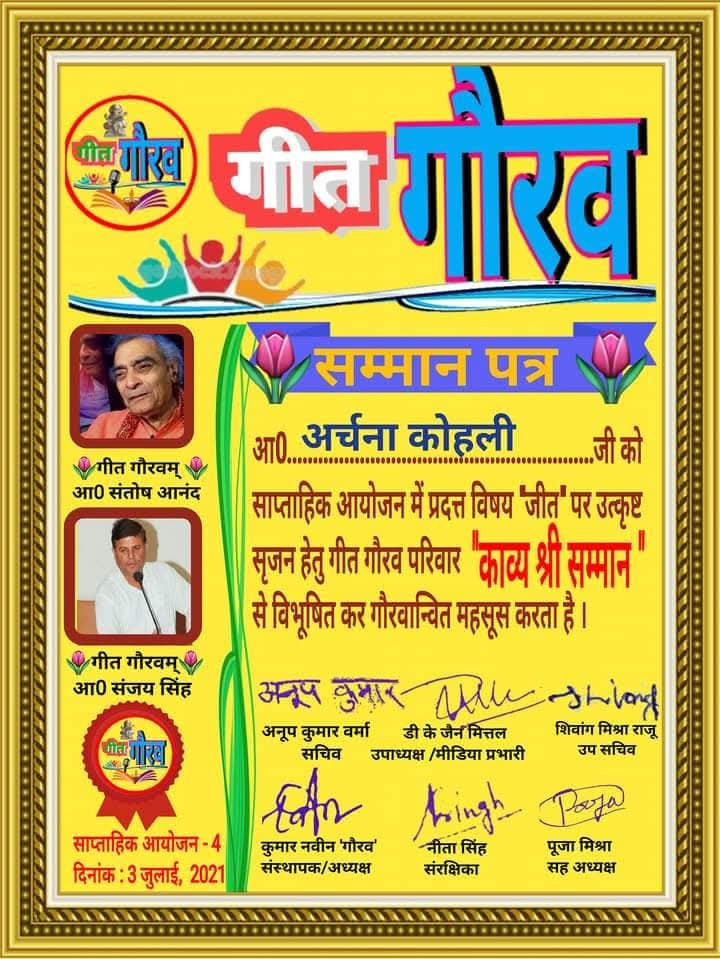 गीत गौरव
गीत गौरव
सम्मान पत्र
आ0..अर्चना कोहली..जी को
साप्ताहिक आयोजन में प्रदत्त विषय "जीत" पर उत्कृष्ट
सृजन हेतु गीत गौरव परिवार "काव्य श्री सम्मान"
से विभूषित कर गौरवान्वित महसूस करता है।
गीत गौरवम्
आ0 संतोष आनंद
गीत गौरवम्
आ0 संजय सिंह
गीत गौरव
साप्ताहिक आयोजन - 4
दिनांक : 3 जुलाई, 2021
अनूप कुमार
Shivang
अनूप कुमार वर्मा
सचिव
डी के जैन मित्तल
उपाध्यक्ष /मीडिया प्रभारी
शिवांग मिश्रा राजू
उप सचिव
Pooja
कुमार नवीन 'गौरव'
संस्थापक/अध्यक्ष
नीता सिंह
संरक्षिका
पूजा मिश्रा
सह अध्यक्ष